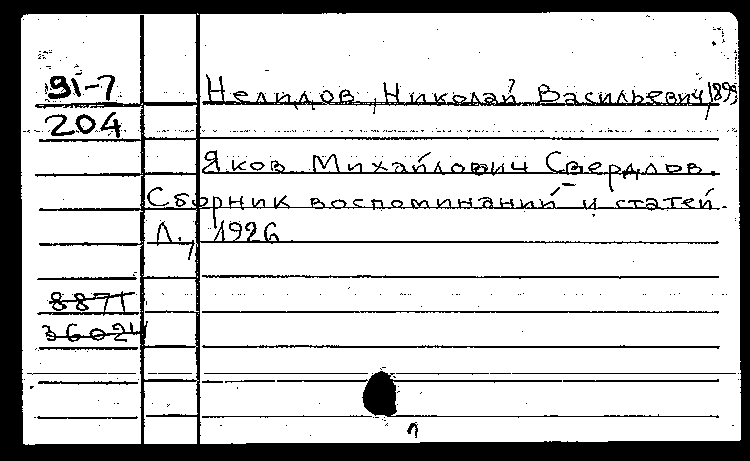 91-7 Нелидов, Николай Васильевич, 1895
204
Яков Михайлович Свердлов.
Сборник воспоминаний и статей.
Л., 1926
8871
36024